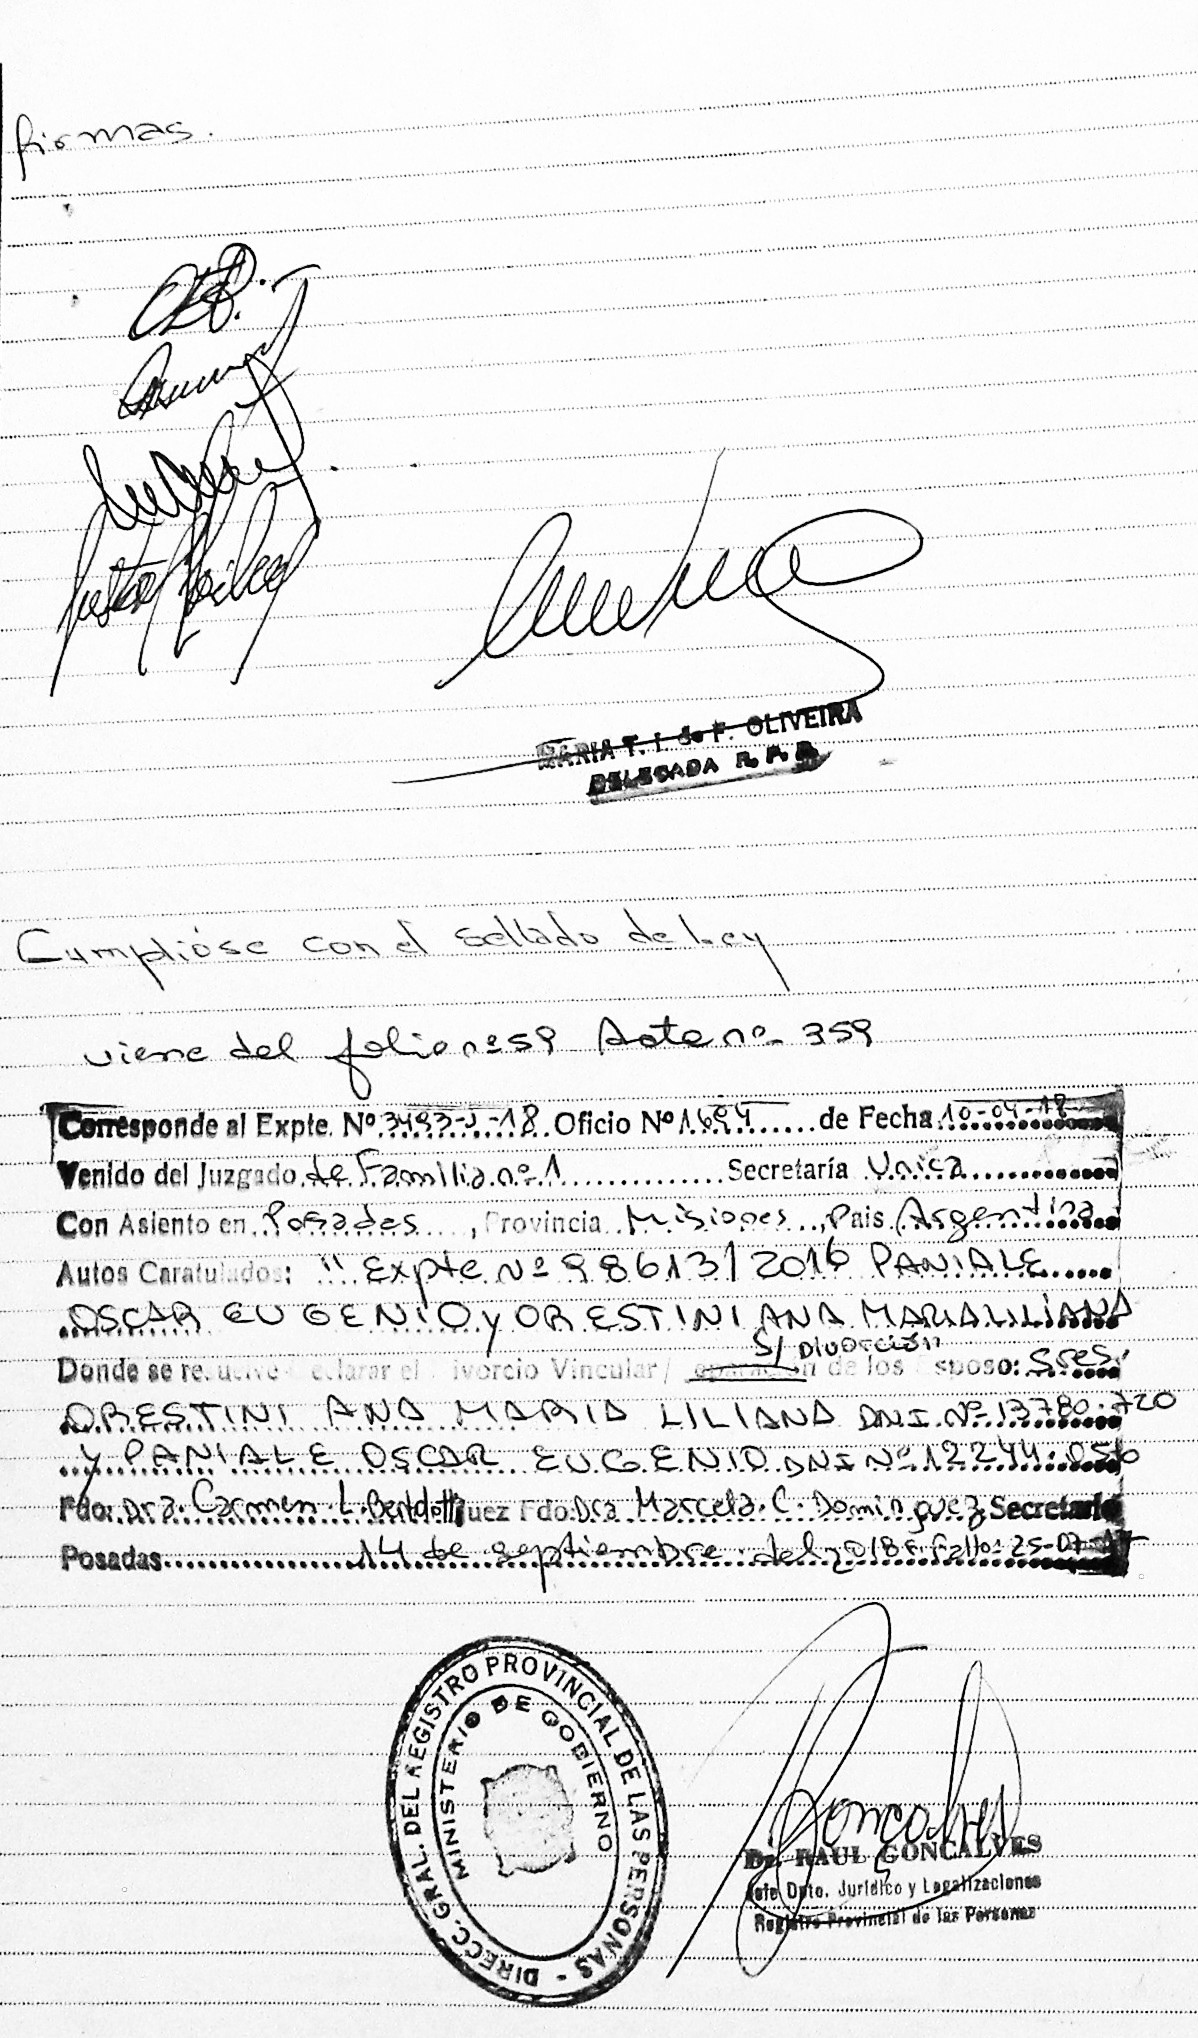 firmas.
MARIA T. I. de F. OLIVEIRA
DELEGADA R. P. P.
Cumplióse con el sellado de Ley
viene del folio nº 59 Acta nº 359
Corresponde al Expte. Nº 3493-J-18 Oficio Nº 1694 de Fecha 10-04-18
Venido del Juzgado de Familia nº 1 Secretaría Unica
Con Asiento en Posadas, Provincia Misiones, Pais Argentina
Autos Caratulados: "Expte Nº 98613/2016 PANIALE
OSCAR EUGENIO y ORESTINI ANA MARIA LILIANA
S/ DIVORCIO"
Donde se resuelve declarar el Divorcio Vincular/ separación de los Esposo: Sres.
ORESTINI ANA MARIA LILIANA DNI Nº 13780.720
y PANIALE OSCAR EUGENIO DNI Nº 12244.056
Fdo: Dra. Carmen L. Juez Fdo: Dra Marcela C. Dominguez Secretario
Posadas 14 de septiembre del 2018 F. Fallo: 25-07-17
DIRECC. GRAL. DEL REGISTRO PROVINCIAL DE LAS PERSONAS -
MINISTERIO DE GOBIERNO
Dr. RAUL GONCALVES
Jefe Dpto. Jurídico y Legalizaciones
Registro Provincial de las Personas